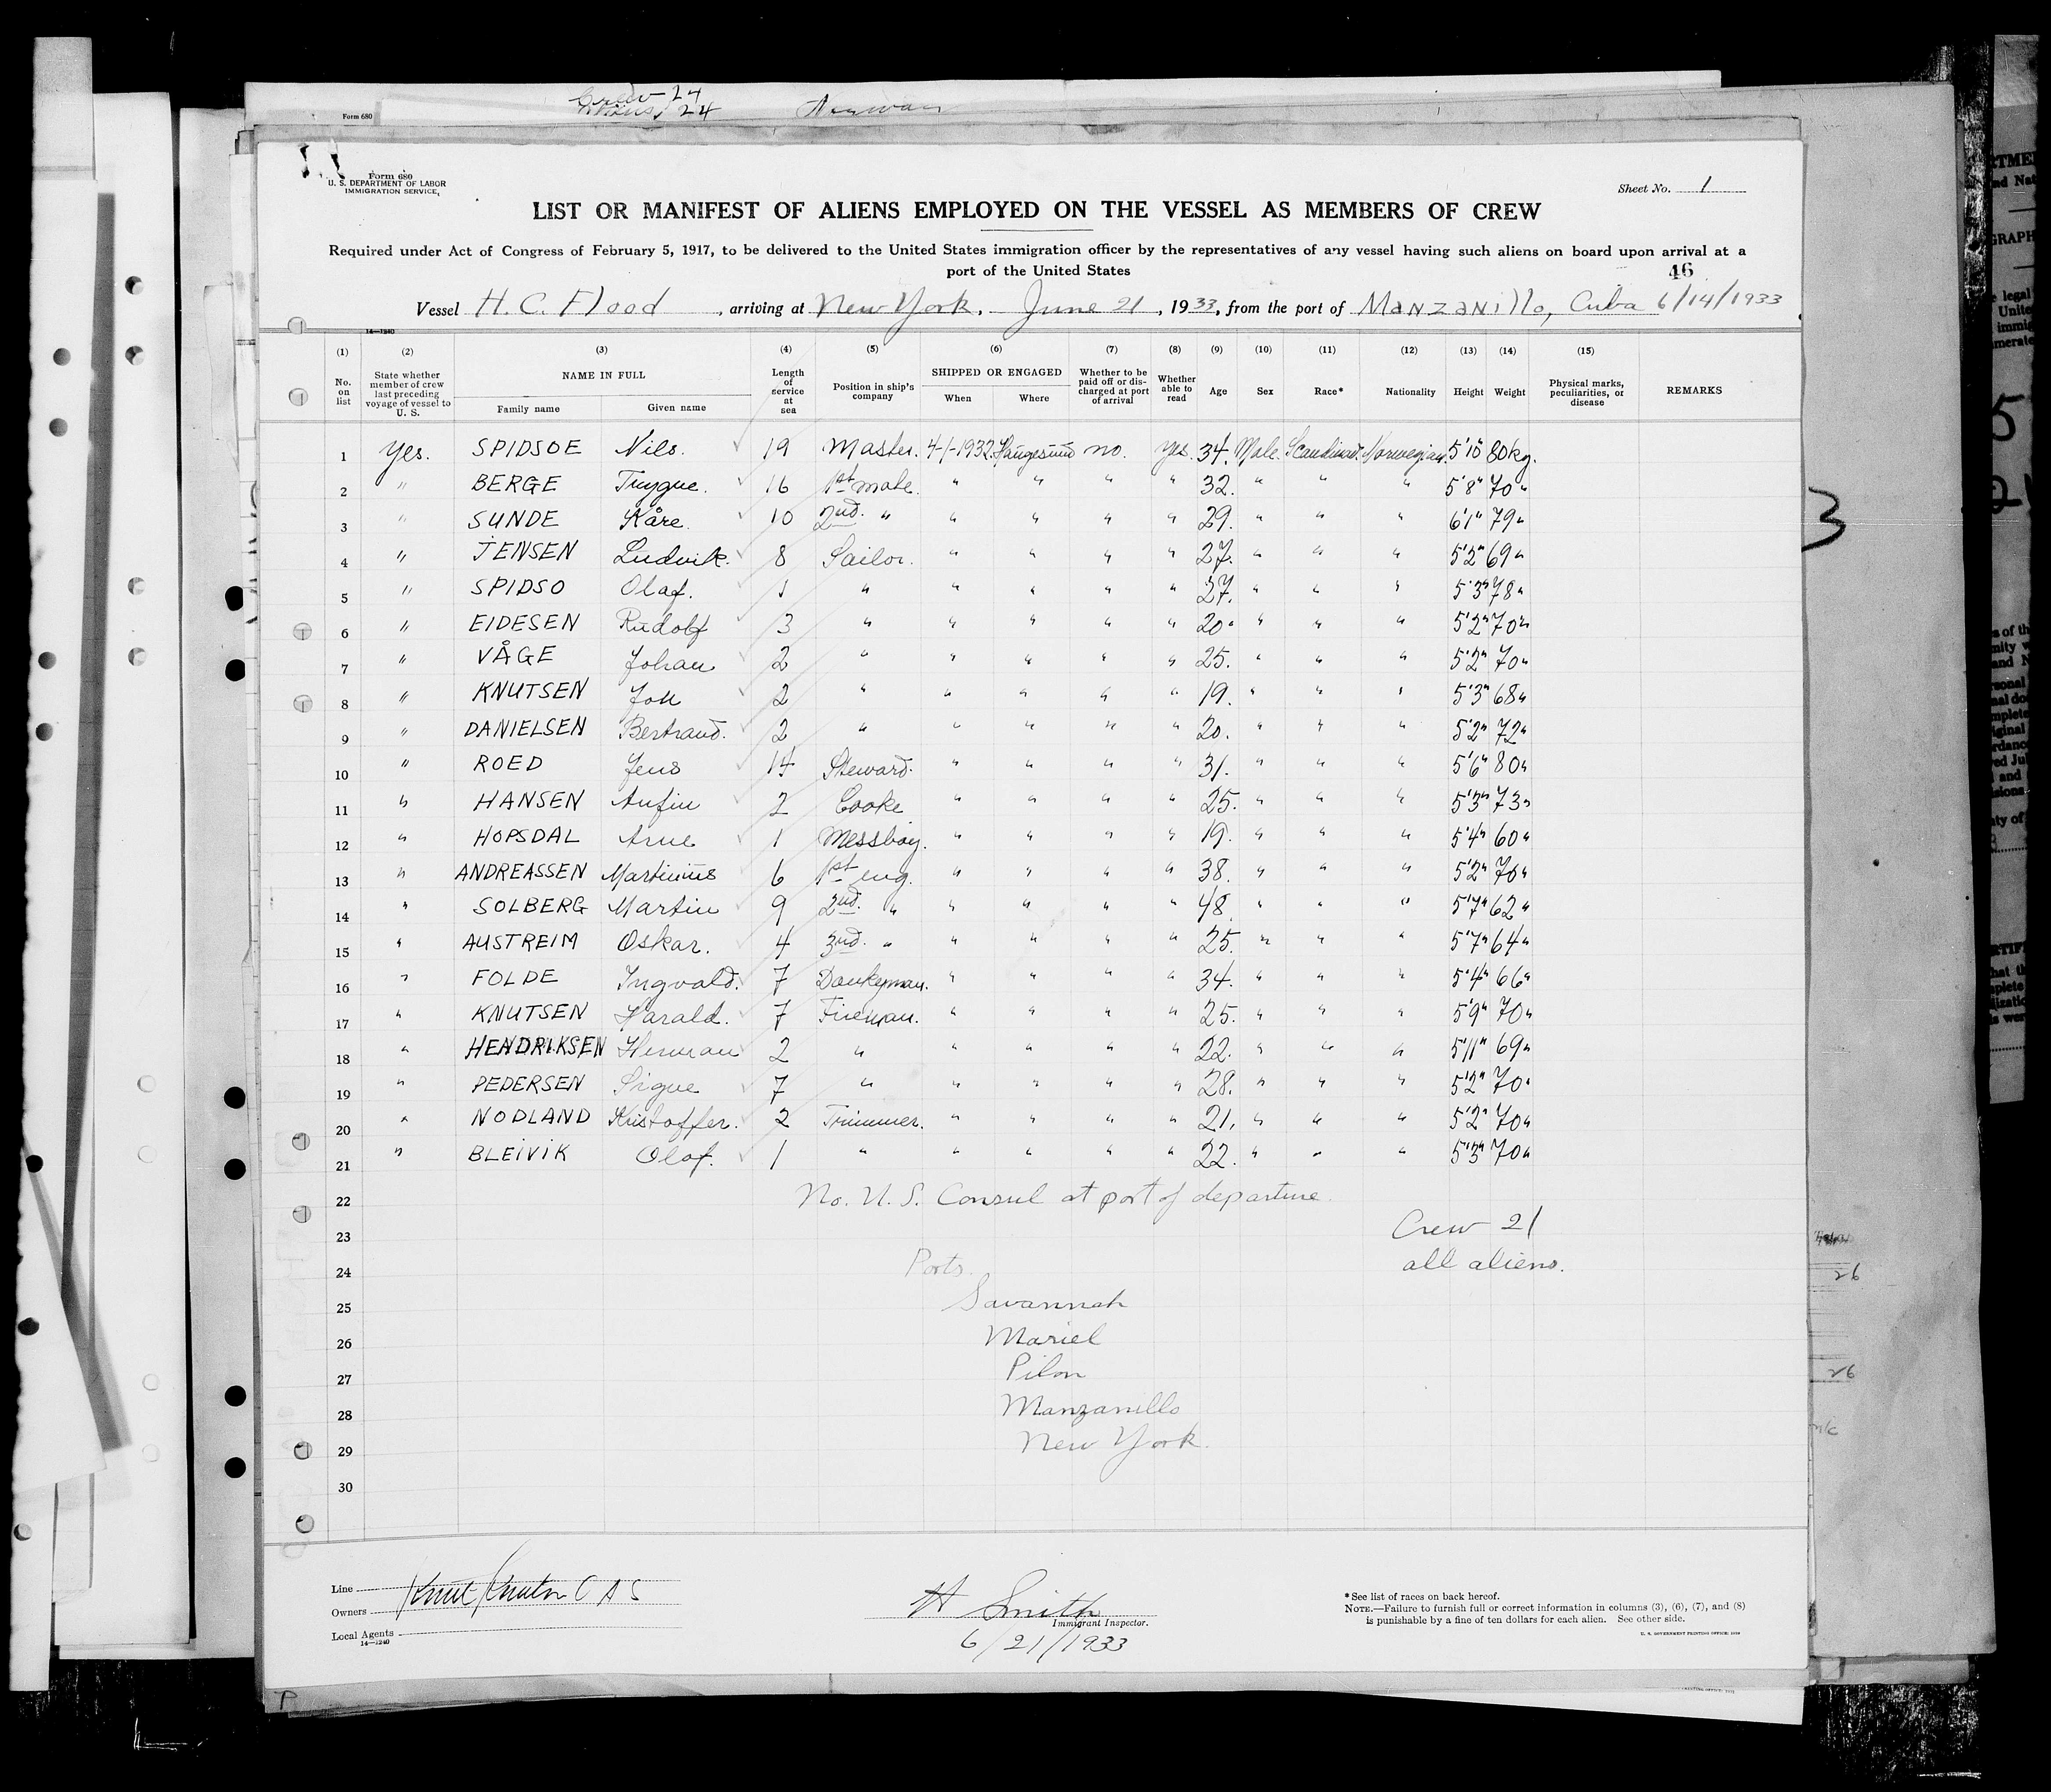 Crew 24
24
Form 680
Form 680
U. S. DEPARTMENT OF LABOR
IMMIGRATION SERVICE,
Sheet No. 1
LIST OR MANIFEST OF ALIENS EMPLOYED ON THE VESSEL AS MEMBERS OF CREW
Required under Act of Congress of February 5, 1917, to be delivered to the United States immigration officer by the representatives of any vessel having such aliens on board upon arrival at a
port of the United States
46
Vessel H. C. Flood, arriving at New York, June 21, 1933, from the port of Manzanillo, Cuba 6/14/1933
14—1240
(1) (2) (3) (4) (5) (6) (7) (8) (9) (10) (11) (12) (13) (14) (15)
No. on list | State whether member of crew last preceding voyage of vessel to U. S. | NAME IN FULL Family name Given name | Length of service at sea | Position in ship's company | SHIPPED OR ENGAGED When Where | Whether to be paid off or discharged at port of arrival | Whether able to read | Age | Sex | Race* | Nationality | Height | Weight | Physical marks, peculiarities, or disease | REMARKS
1 Yes. SPIDSOE Nils. 19 Master. 4-1-1932. Haugesund no. yes. 34. Male. Scandinav. Norwegian. 5'10" 80kg.
2 " BERGE Trygve. 16 1st mate. " " " " 32. " " " 5'8" 70"
3 " SUNDE Kåre. 10 2nd. " " " " " 29. " " " 6'1" 79"
4 " JENSEN Ludvik. 8 Sailor. " " " " 27. " " " 5'2" 69"
5 " SPIDSO Olaf. 1 " " " " " 27. " " " 5'3" 78"
6 " EIDESEN Rudolf 3 " " " " " 20. " " " 5'2" 70"
7 " VÅGE Johan 2 " " " " " 25. " " " 5'2" 70"
8 " KNUTSEN Jon 2 " " " " " 19. " " " 5'3" 68"
9 " DANIELSEN Bertrand. 2 " " " " " 20. " " " 5'2" 72"
10 " ROED Jens 14 Steward. " " " " 31. " " " 5'6" 80"
11 " HANSEN Anfin 2 Cooke " " " " 25. " " " 5'3" 73"
12 " HOPSDAL Arne 1 Messboy. " " " " 19. " " " 5'4" 60"
13 " ANDREASSEN Martinius 6 1st eng. " " " " 38. " " " 5'2" 70"
14 " SOLBERG Martin 9 2nd. " " " " " 48 " " " 5'7" 62"
15 " AUSTREIM Oskar. 4 3nd. " " " " " 25. " " " 5'7" 64"
16 " FOLDE Ingvald. 7 Donkeyman. " " " " 34. " " " 5'4" 66"
17 " KNUTSEN Harald. 7 Fireman. " " " " 25. " " " 5'9" 70"
18 " HENDRIKSEN Herman 2 " " " " " 22. " " " 5'11" 69"
19 " PEDERSEN Signe 7 " " " " " 28. " " " 5'2" 70"
20 " NODLAND Kristoffer. 2 Trimmer. " " " " 21. " " " 5'2" 70"
21 " BLEIVIK Olaf. 1 " " " " " 22. " " " 5'3" 70"
22 No. U. S. Consul at port of departure
23 Crew 21
24 Ports. all aliens.
25 Savannah
26 Mariel
27 Pilon
28 Manzanillo
29 New York.
30
Line
Owners Knut Knutsen O A S
Local Agents
14—1240
H Smith
Immigrant Inspector.
6/21/1933
* See list of races on back hereof.
NOTE.—Failure to furnish full or correct information in columns (3), (6), (7), and (8)
is punishable by a fine of ten dollars for each alien. See other side.
U. S. GOVERNMENT PRINTING OFFICE:
3
26
26